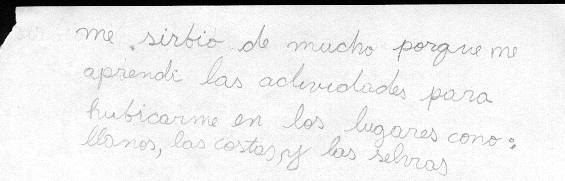 me sirbio de mucho porque me
aprendi las actividades para
hubicarme en los lugares cono:
llanos, las costas, y las selvas